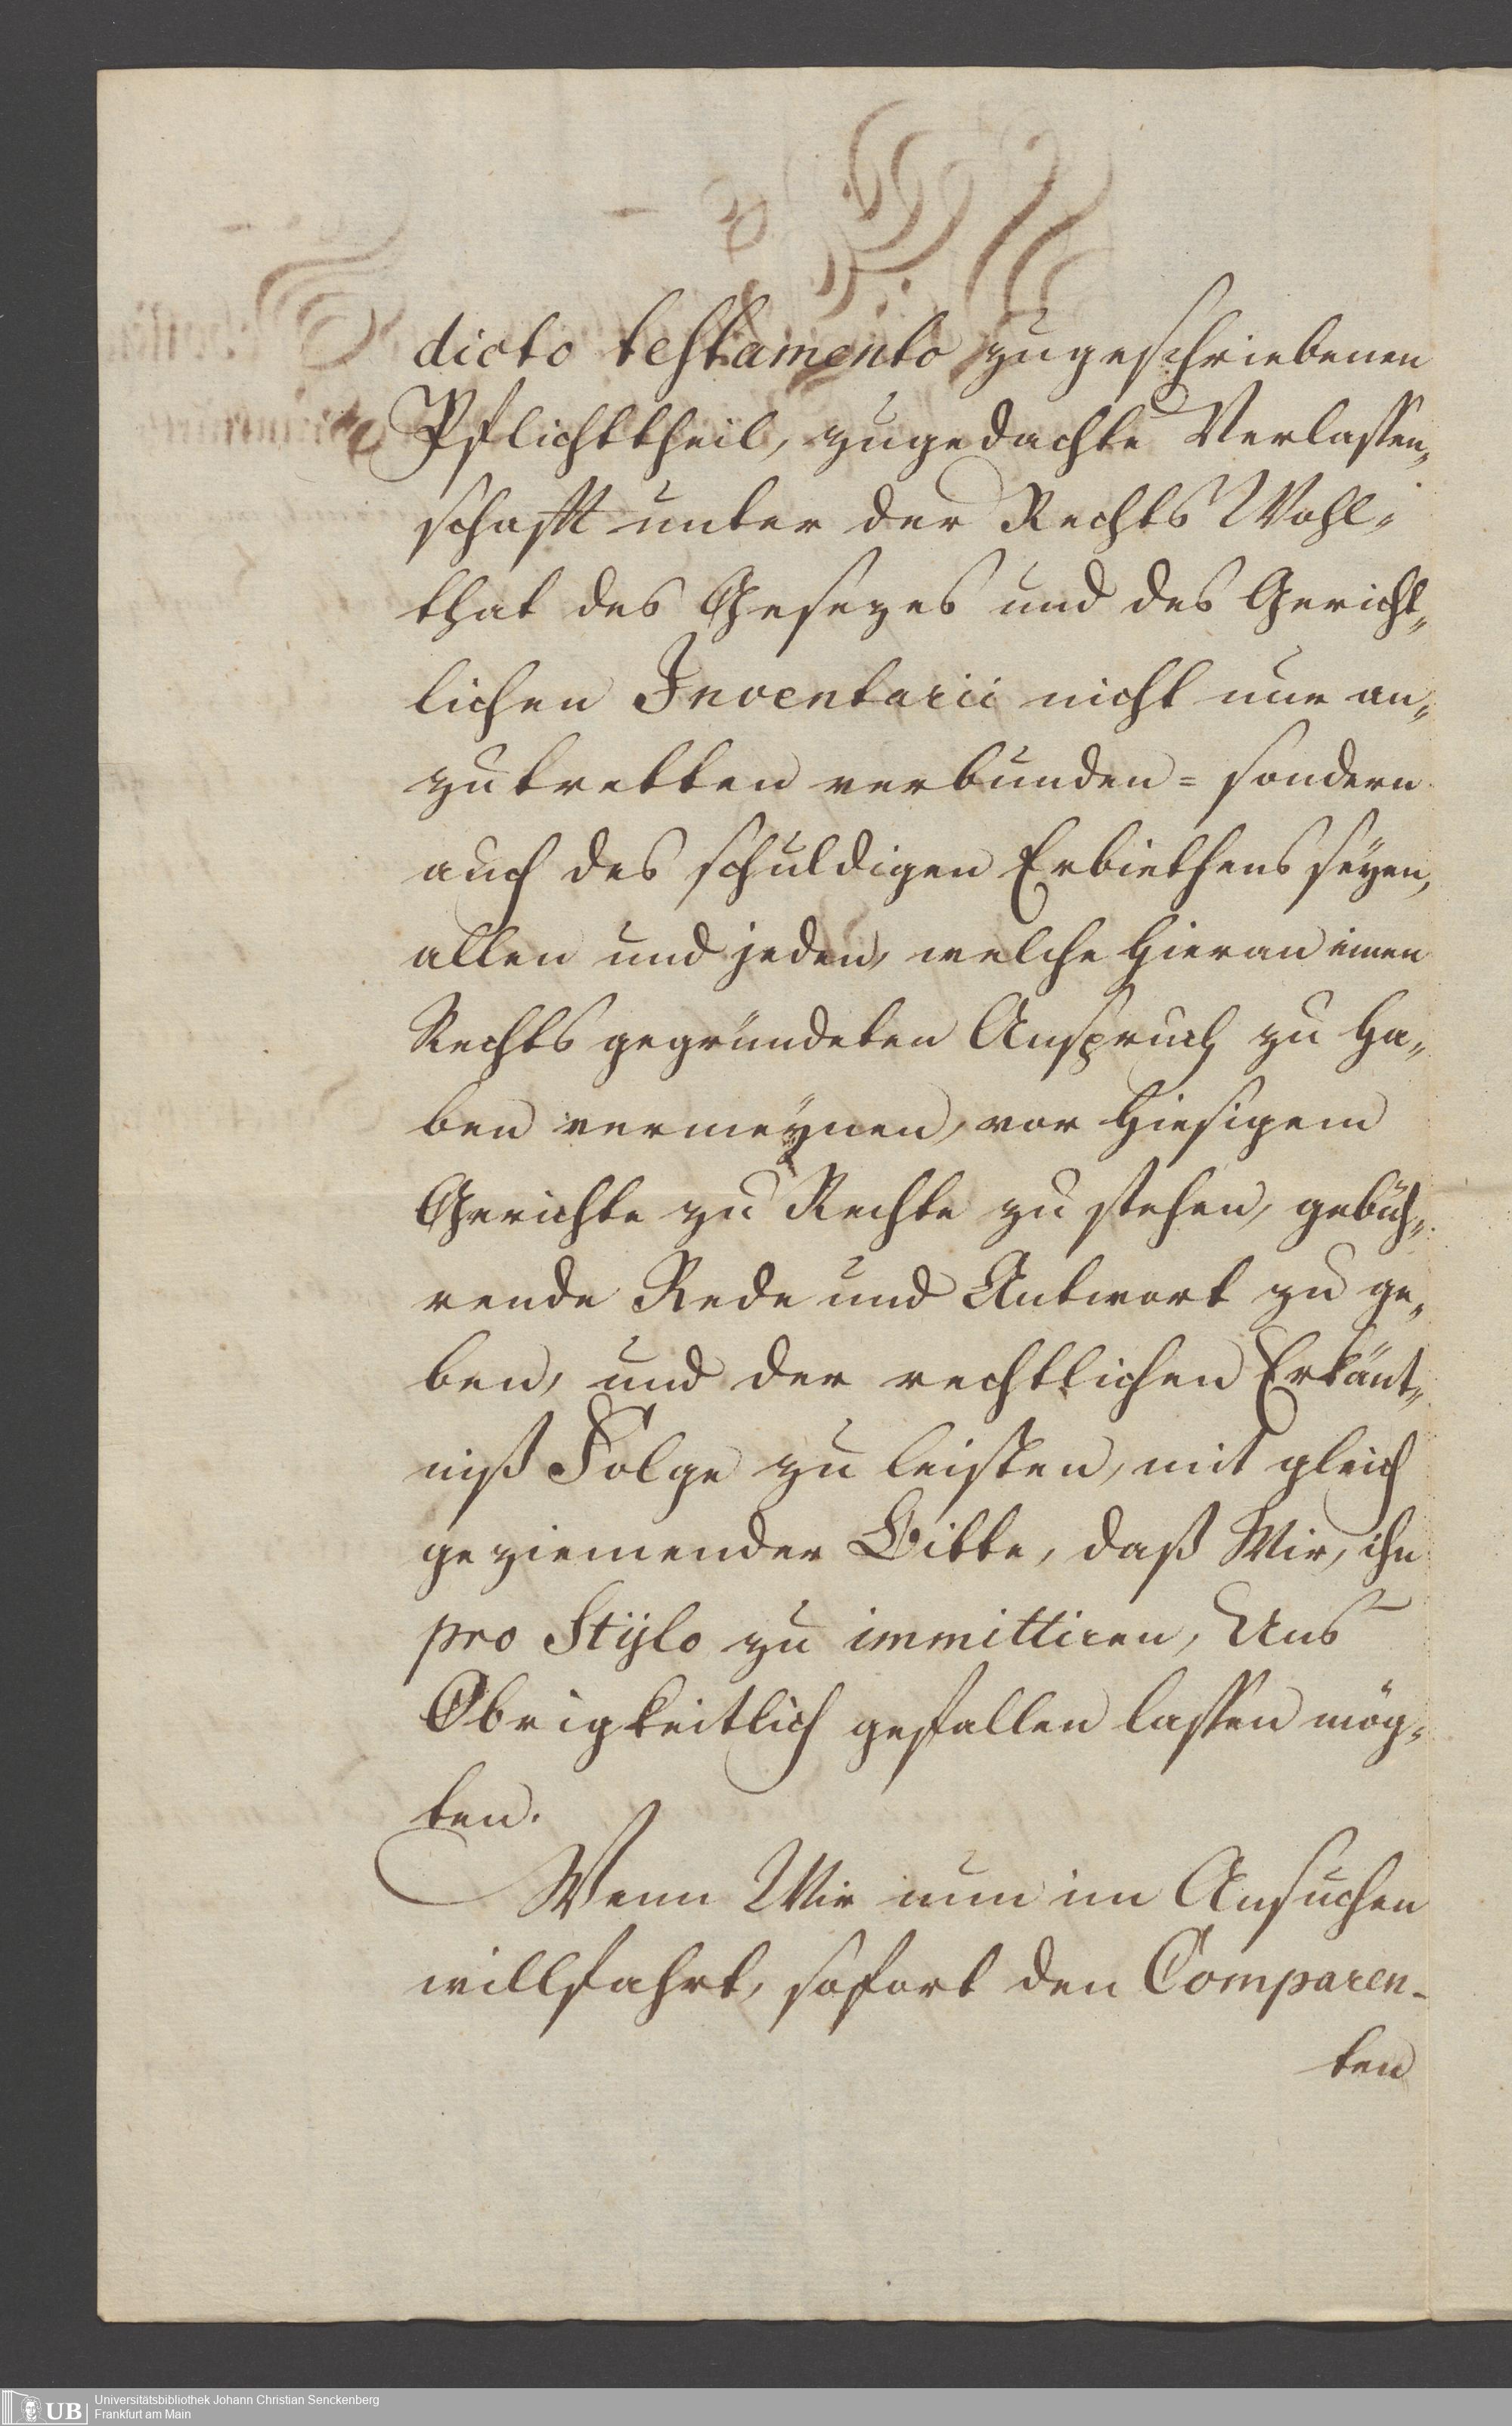 dicto testamento zugeschriebenen
Pflichttheil, zugedachte Verlassen„
schafft unter der Rechts Wohl„
that des Gesezes und des Gericht„
lichen Inventarii nicht nur an„
zutretten verbunden = sondern
auch des schuldigen Erbiethens seyen,
allen und jeden, welche hieran einen
Rechts gegründeten Anspruch zu ha„
ben vermeynen, vor hiesigem
Gerichte zu Rechte zu stehen, gebüh„
rende Rede und Antwort zu ge„
ben, und der rechtlichen Erkänt„
niß Folge zu leisten, mit gleich
geziemender Bitte, daß Wir, ihn
pro Stÿlo zu immittiren, Uns
Obrigkeitlich gefallen lassen mög„
ten.
Wenn Wir nun im Ansuchen
willfahrt, sofort den Comparen-
ten
UB
Universitätsbibliothek Johann Christian Senckenberg
Frankfurt am Main